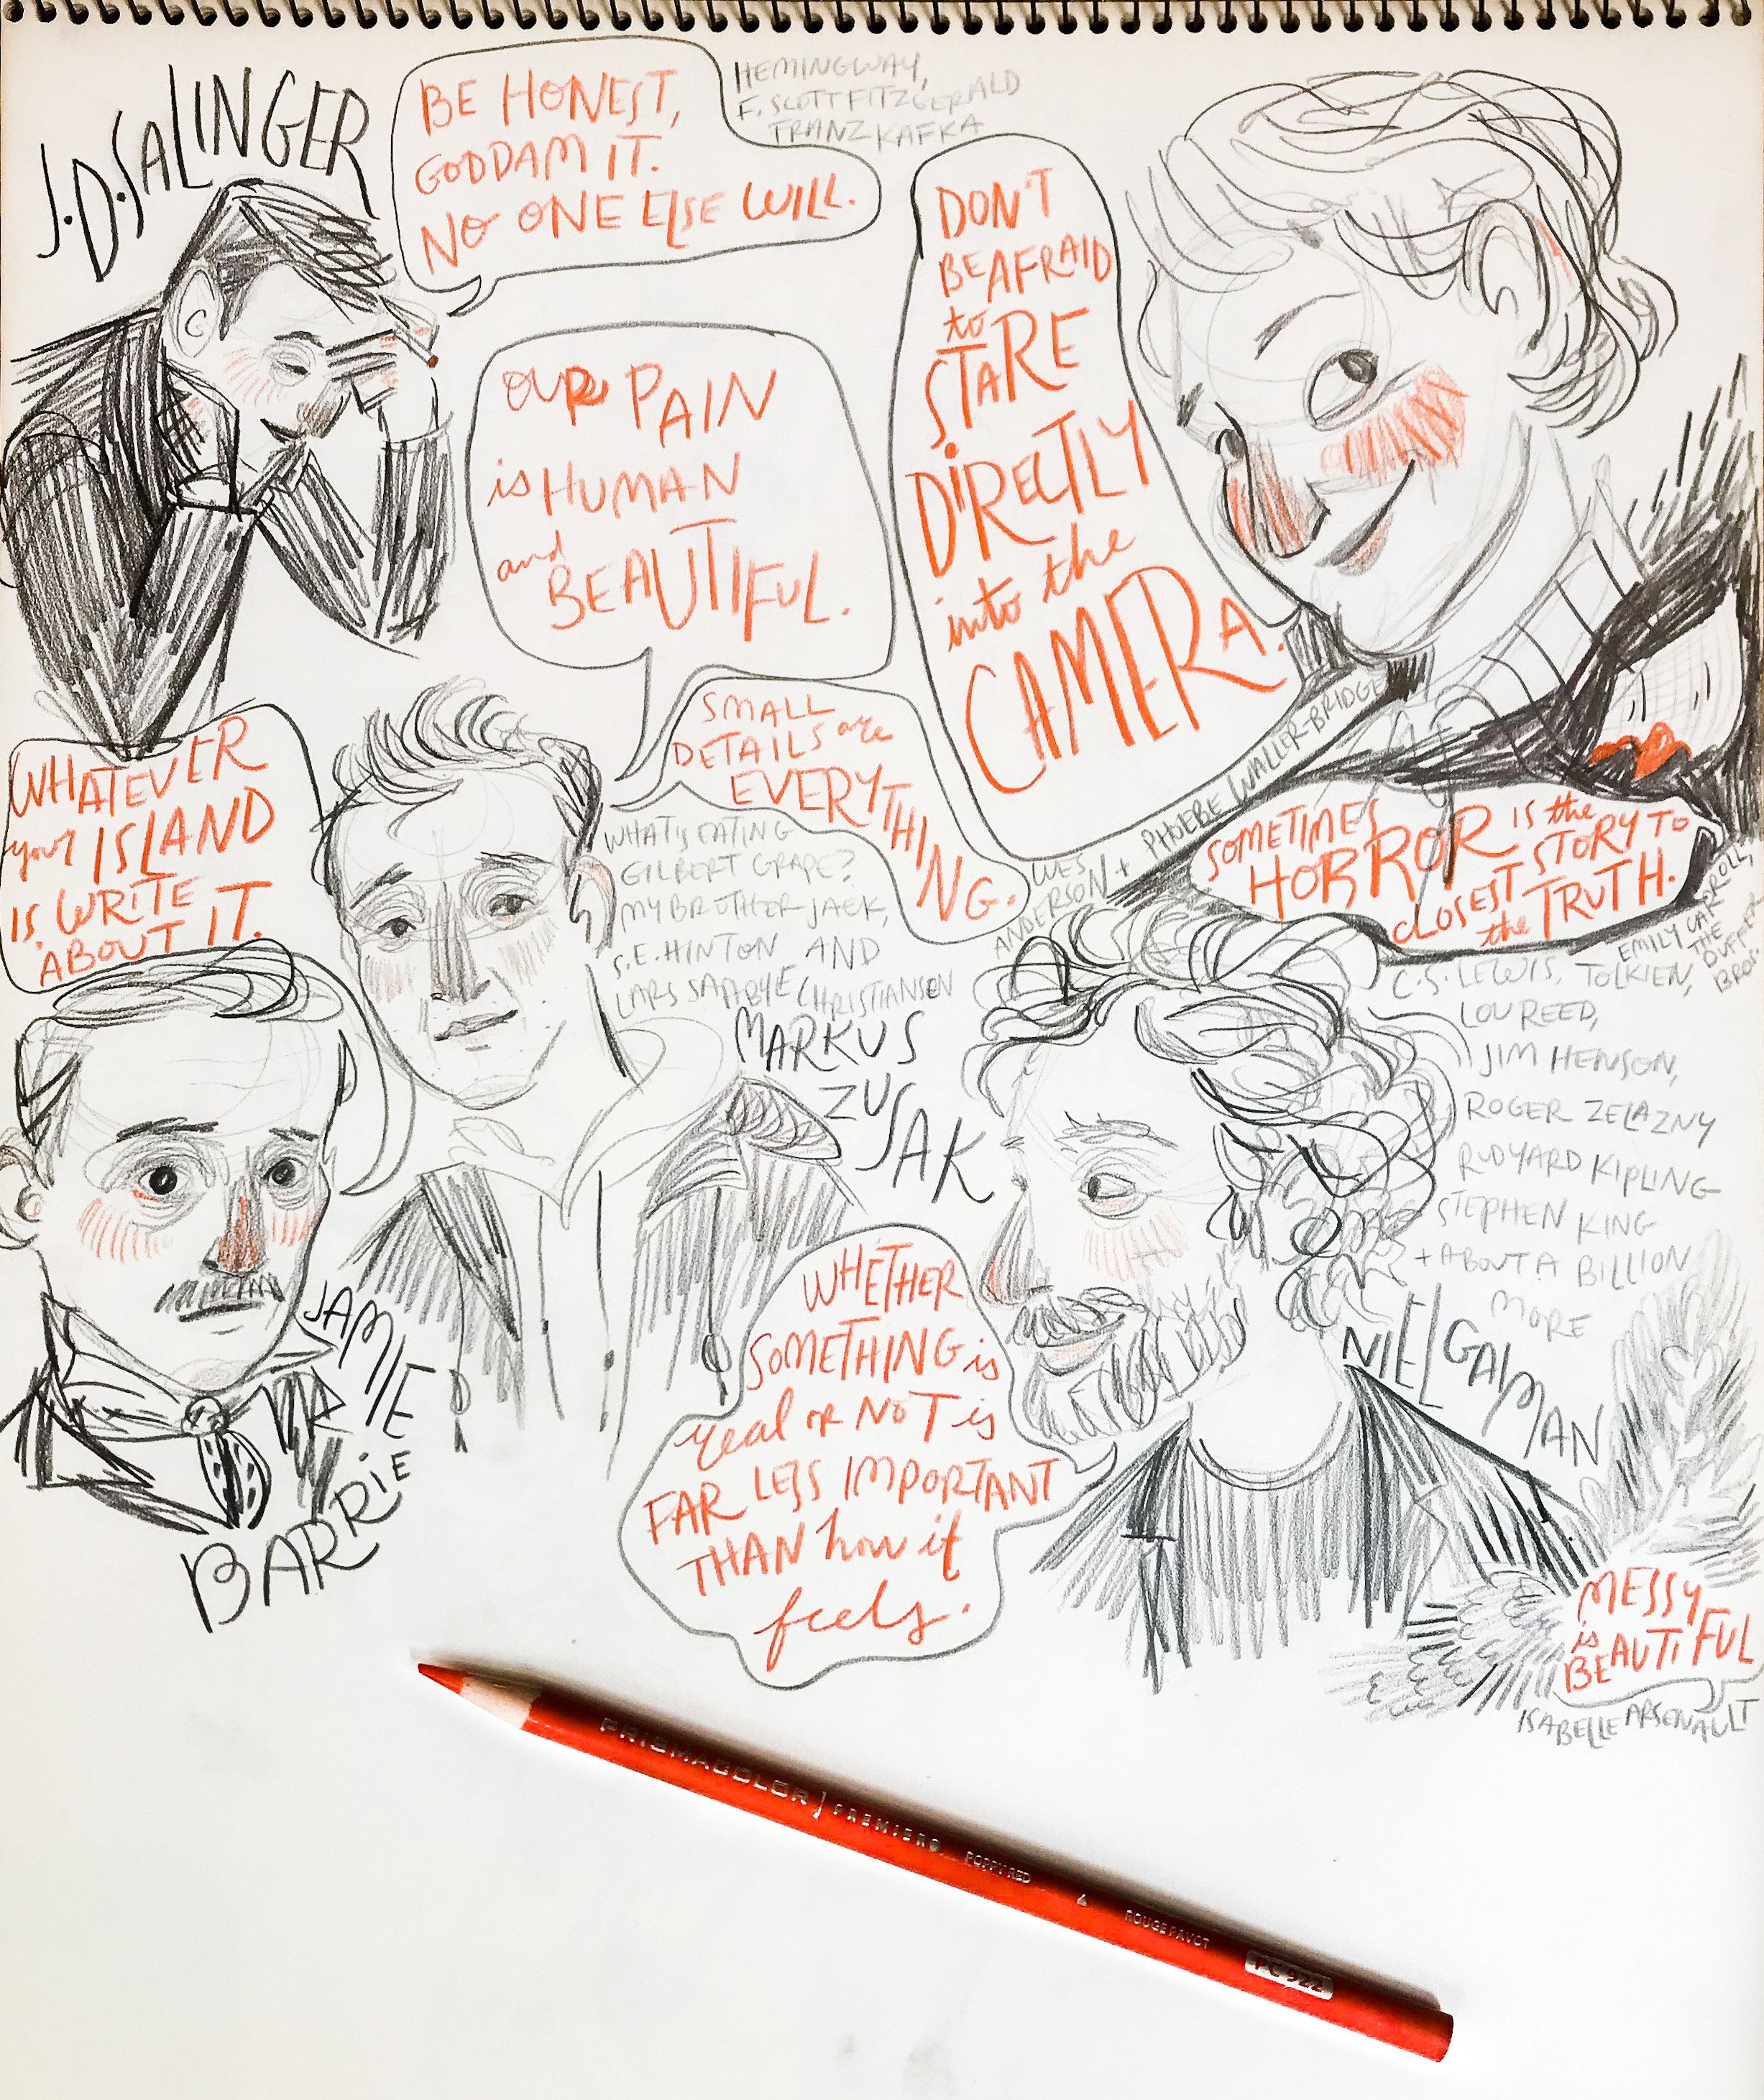 J.D. SALINGER
BE HONEST,
GODDAM IT.
NO ONE ELSE WILL.
HEMINGWAY,
F. SCOTT FITZGERALD
FRANZ KAFKA
OUR PAIN
is HUMAN
and
BEAUTIFUL.
DON'T
BE AFRAID
to
STARE
DIRECTLY
into the
CAMERA.
WES
ANDERSON + PHOEBE WALLER-BRIDGE
SMALL
DETAILS are
EVERYTHING.
WHAT'S EATING
GILBERT GRAPE?
MY BROTHER JACK,
S.E. HINTON AND
LARS SAABYE CHRISTIANSEN
MARKUS
ZUSAK
WHATEVER
your ISLAND
IS, WRITE
ABOUT IT.
JAMIE
BARRIE
SOMETIMES
HORROR IS the
CLOSEST STORY TO
the TRUTH.
EMILY CARROLL,
THE
DUFFER
BROS.
C.S. LEWIS, TOLKIEN,
LOU REED,
JIM HENSON,
ROGER ZELAZNY
RUDYARD KIPLING
STEPHEN KING
+ ABOUT A BILLION
MORE
NIEL GAIMAN
WHETHER
SOMETHING is
real or NOT is
FAR LESS IMPORTANT
THAN how it
feels.
MESSY
is
BEAUTIFUL
ISABELLE ARSENAULT
PRISMACOLOR PREMIER POPPY RED ROUGE PAVOT PC 922